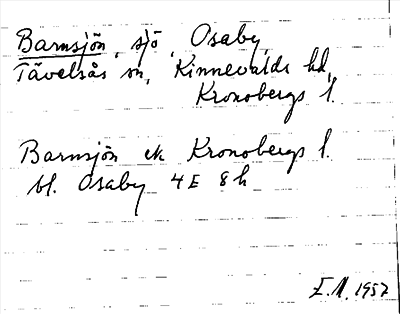 Barnsjön, sjö, Osaby,
Tävelsås sn, Kinnevalds hd,
Kronobergs l.
Barnsjön ek Kronobergs l.
bl. Osaby 4E 8h
E.M. 1957